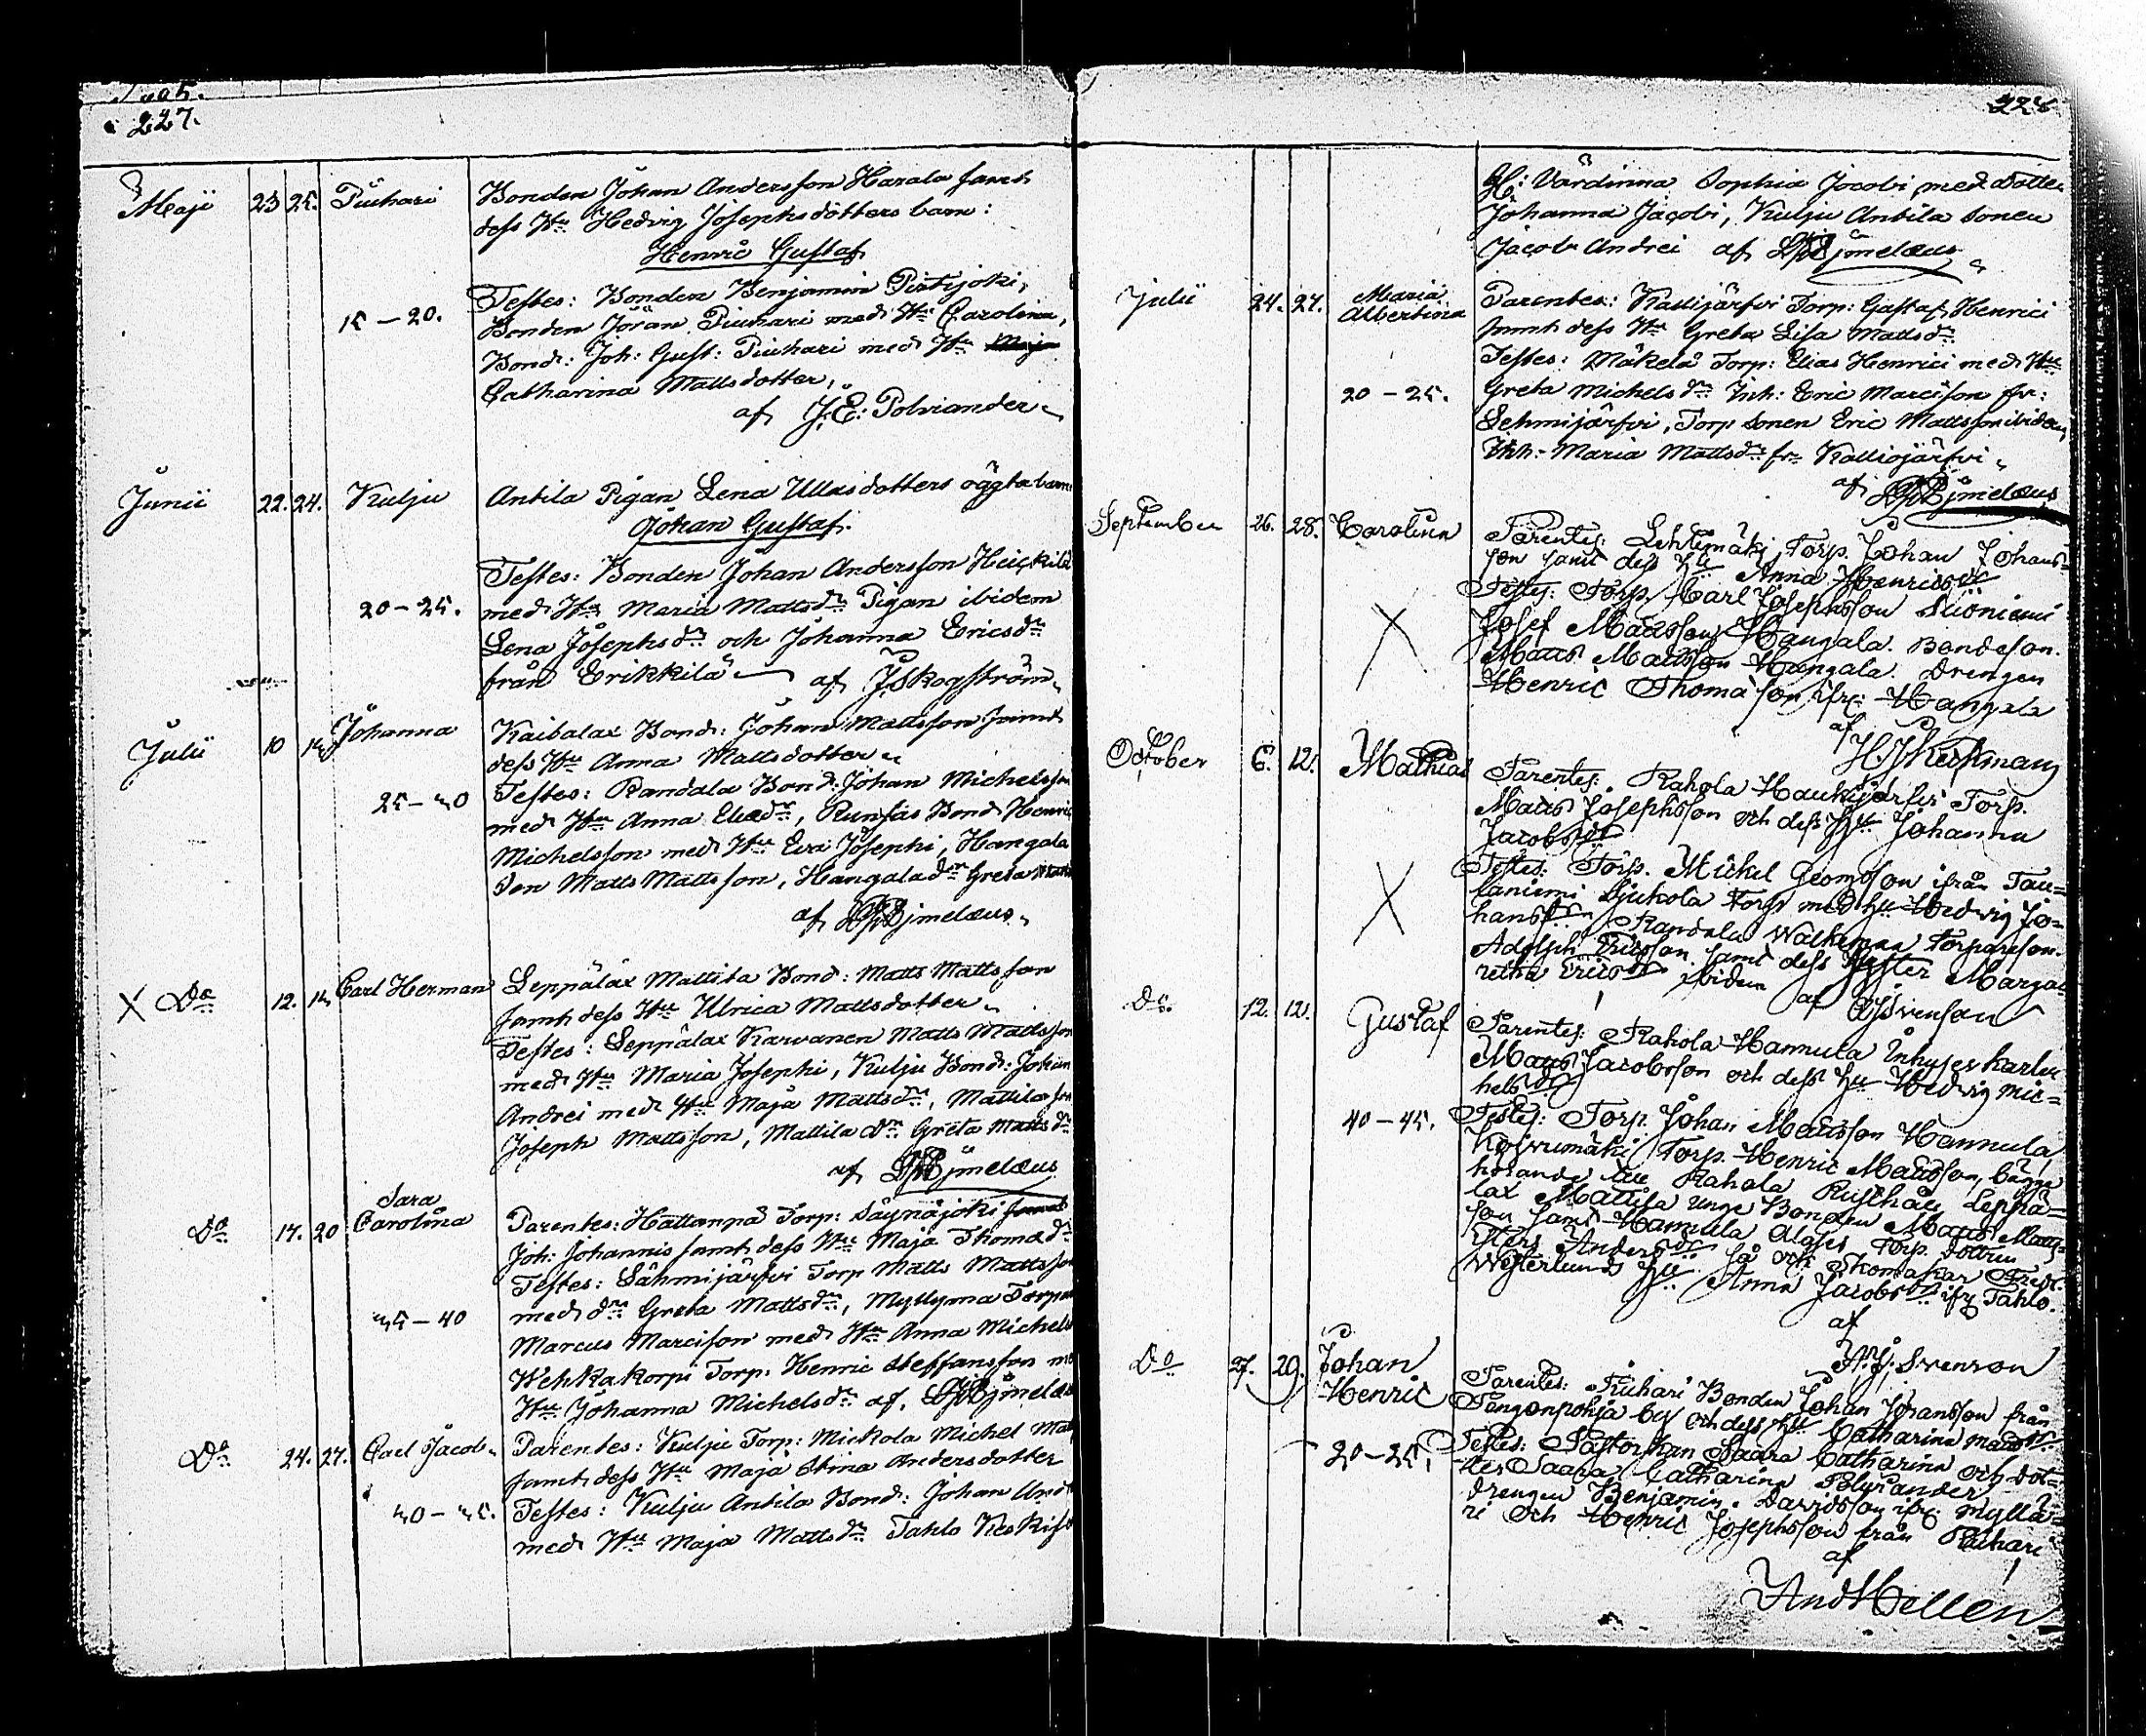 227.
Maji 23 25. Piuhari Bonden Johan Andersson Harala samt
dess Hu Hedvig Josephsdotters barn:
Henric Gustaf
Testes: Bonden Benjamin Pirtijoki,
15 - 20. Bonden Jöran Piuhari med Hu Carolina,
Bond: Joh: Gust: Piuhari med Hu
Catharina Mattsdotter,
af J.E: Polviander
Junii 22. 24. Kulju Antila Pigan Lena Ullasdotters oägta barn
Johan Gustaf.
Testes: Bonden Johan Andersson Heickilä
20 - 25. med Hu Maria Mattsdr Pigan ibidem
Lena Josephsdr och Johanna Ericsdr
från Erikkilä af J Skogström
Julii 10 14 Johanna Kaibalax Bond: Johan Mattsson samt
dess Hu Anna Mattsdotter
25 - 30 Testes: Randala Bond: Johan Michelsson
med Hu Anna Eliædr, Runsas Bond Henric
Michelsson med Hu Eva Josephi, Hangala
Son Matts Mattsson, Hangala dr Greta
af
X Do 12. 14 Carl Herman Leppälax Mattila Bond: Matts Mattsson
samt dess Hu Ulrica Mattsdotter
Testes: Leppälax Karvanen Matts Mattsson
med Hu Maria Josephi, Kulju Bond: Johan
Andrei med Hu Maja Mattsdr, Mattila son
Joseph Mattsson, Mattila dr Greta Mattsdr
af
Do 17. 20 Sara Carolina Parentes: Hattanpä Torp: Säynäjoki
Joh: Johannis samt dess Hu Maja Thomædr
Testes: Sähmijärfvi Torp Matts Mattsson
35 - 40 med dr Greta Mattsdr, Myllyma Torpar
Marcus Marcisson med Hu Anna Michels
Wehkakorpi Torp: Henric Steffansson
Hu Johanna Michelsdr af
Do 24. 27. Carl Jacob Parentes: Kulju Torp: Mickola Michel
samt dess Hu Maja Stina Andersdotter
30 - 35. Testes: Kulju Antila Bond: Johan
med Hu Maja Mattsdr Tahlo
228
H: Värdinna Sophia Jacobi med dotter
Johanna Jacobi, Kulju Antila sonen
Jacob Andrei af
Julii 24. 27. Maria Albertina Parentes: Kallijärfvi Torp: Gustaf Henrici
samt dess Hu Greta Lisa Mattsdr
Testes: Mäkelä Torp: Elias Henrici med Hu
20 - 25. Greta Michelsdr Inh: Eric Marcison fr:
Sehmijärfvi, Torp sonen Eric Mattsson ibidem,
Inh: Maria Mattsdr fr Kalliojärfvi
af
September 26. 28. Carolina Parentes: Lehtimäki Torp. Johan Johans=
son samt dess Hu Anna Henricsdr
Testes: Torp. Carl Josephsson Suoniemi
X Josef Mattsson Hangala. Bondeson.
Matts Mattsson Hangala. Drengen
Henric Thomasson ifr: Hangala
af
October 6. 12. Mathias Parentes: Rahola Haukijärfvi Torp.
Matts Josephsson och dess Hu Johanna
Jacobsdr
Testes: Torp. Mickel ifrån Tau=
laniemi Torp med Hu Hedvig Jo=
X hansdr, Randala Torpareson.
Adolph Ericsson samt dess Syster Marga=
retha Ericsdr ibidem af Svenson
Do. 12. 12. Gustaf Parentes: Rahola Hannula Inhyseskarlen
Matts Jacobsson och dess Hu Hedvig Mic=
helsdr
40 - 45. Testes: Torp. Johan Mattsson Hannula,
Torp. Henric Mattsson,
Rahola Rusthåll, Leppä=
lax Mattila unge Bonden Matts Matts=
son samt Hannula Torp. dottren
Anders dr
Westerlunds Hu Anna Jacobsdr ifr Tahlo.
af
Svenson
Do 27. 29. Johan Henric Parentes: Piuhari Bonden Johan Johansson från
Pengonpohja by och dess Hu Catharina Mattsdr
20 - 25. Testes: Pastorskan Saara Catharina och dot=
ter Saara Catharina
Drengen Benjamin Davidsson ifr: Myllä=
ri och Henric Josephsson från Piuhari
af
And Hellen